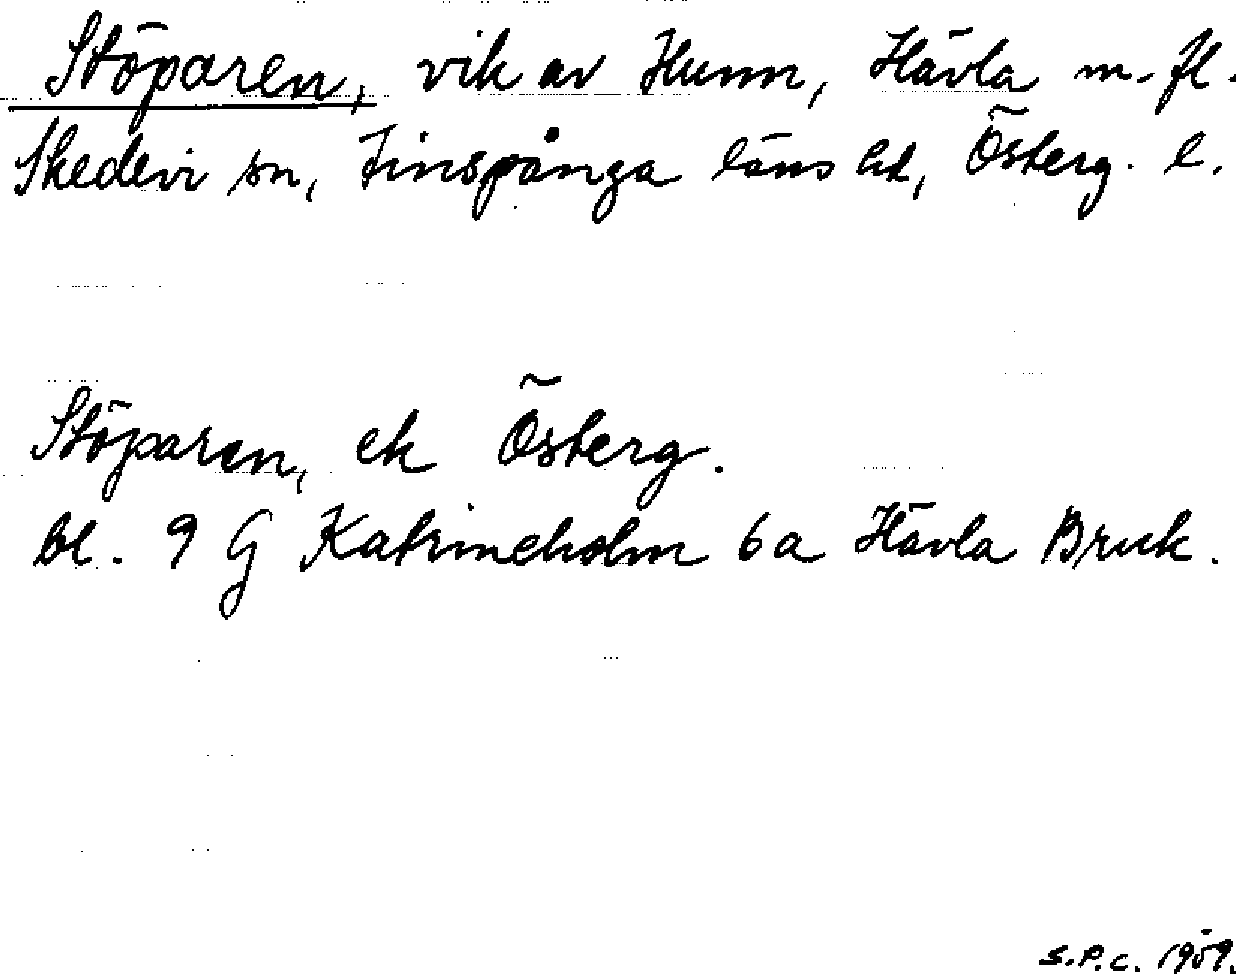 Stöparen, vik av Hunn, Hävla m. fl.
Skedevi sn, Finspånga läns hd, Österg. l.
Stöparen, ek Österg.
bl. 9 G Katrineholm 6a Hävla Bruk.
S.P.C. 1959.